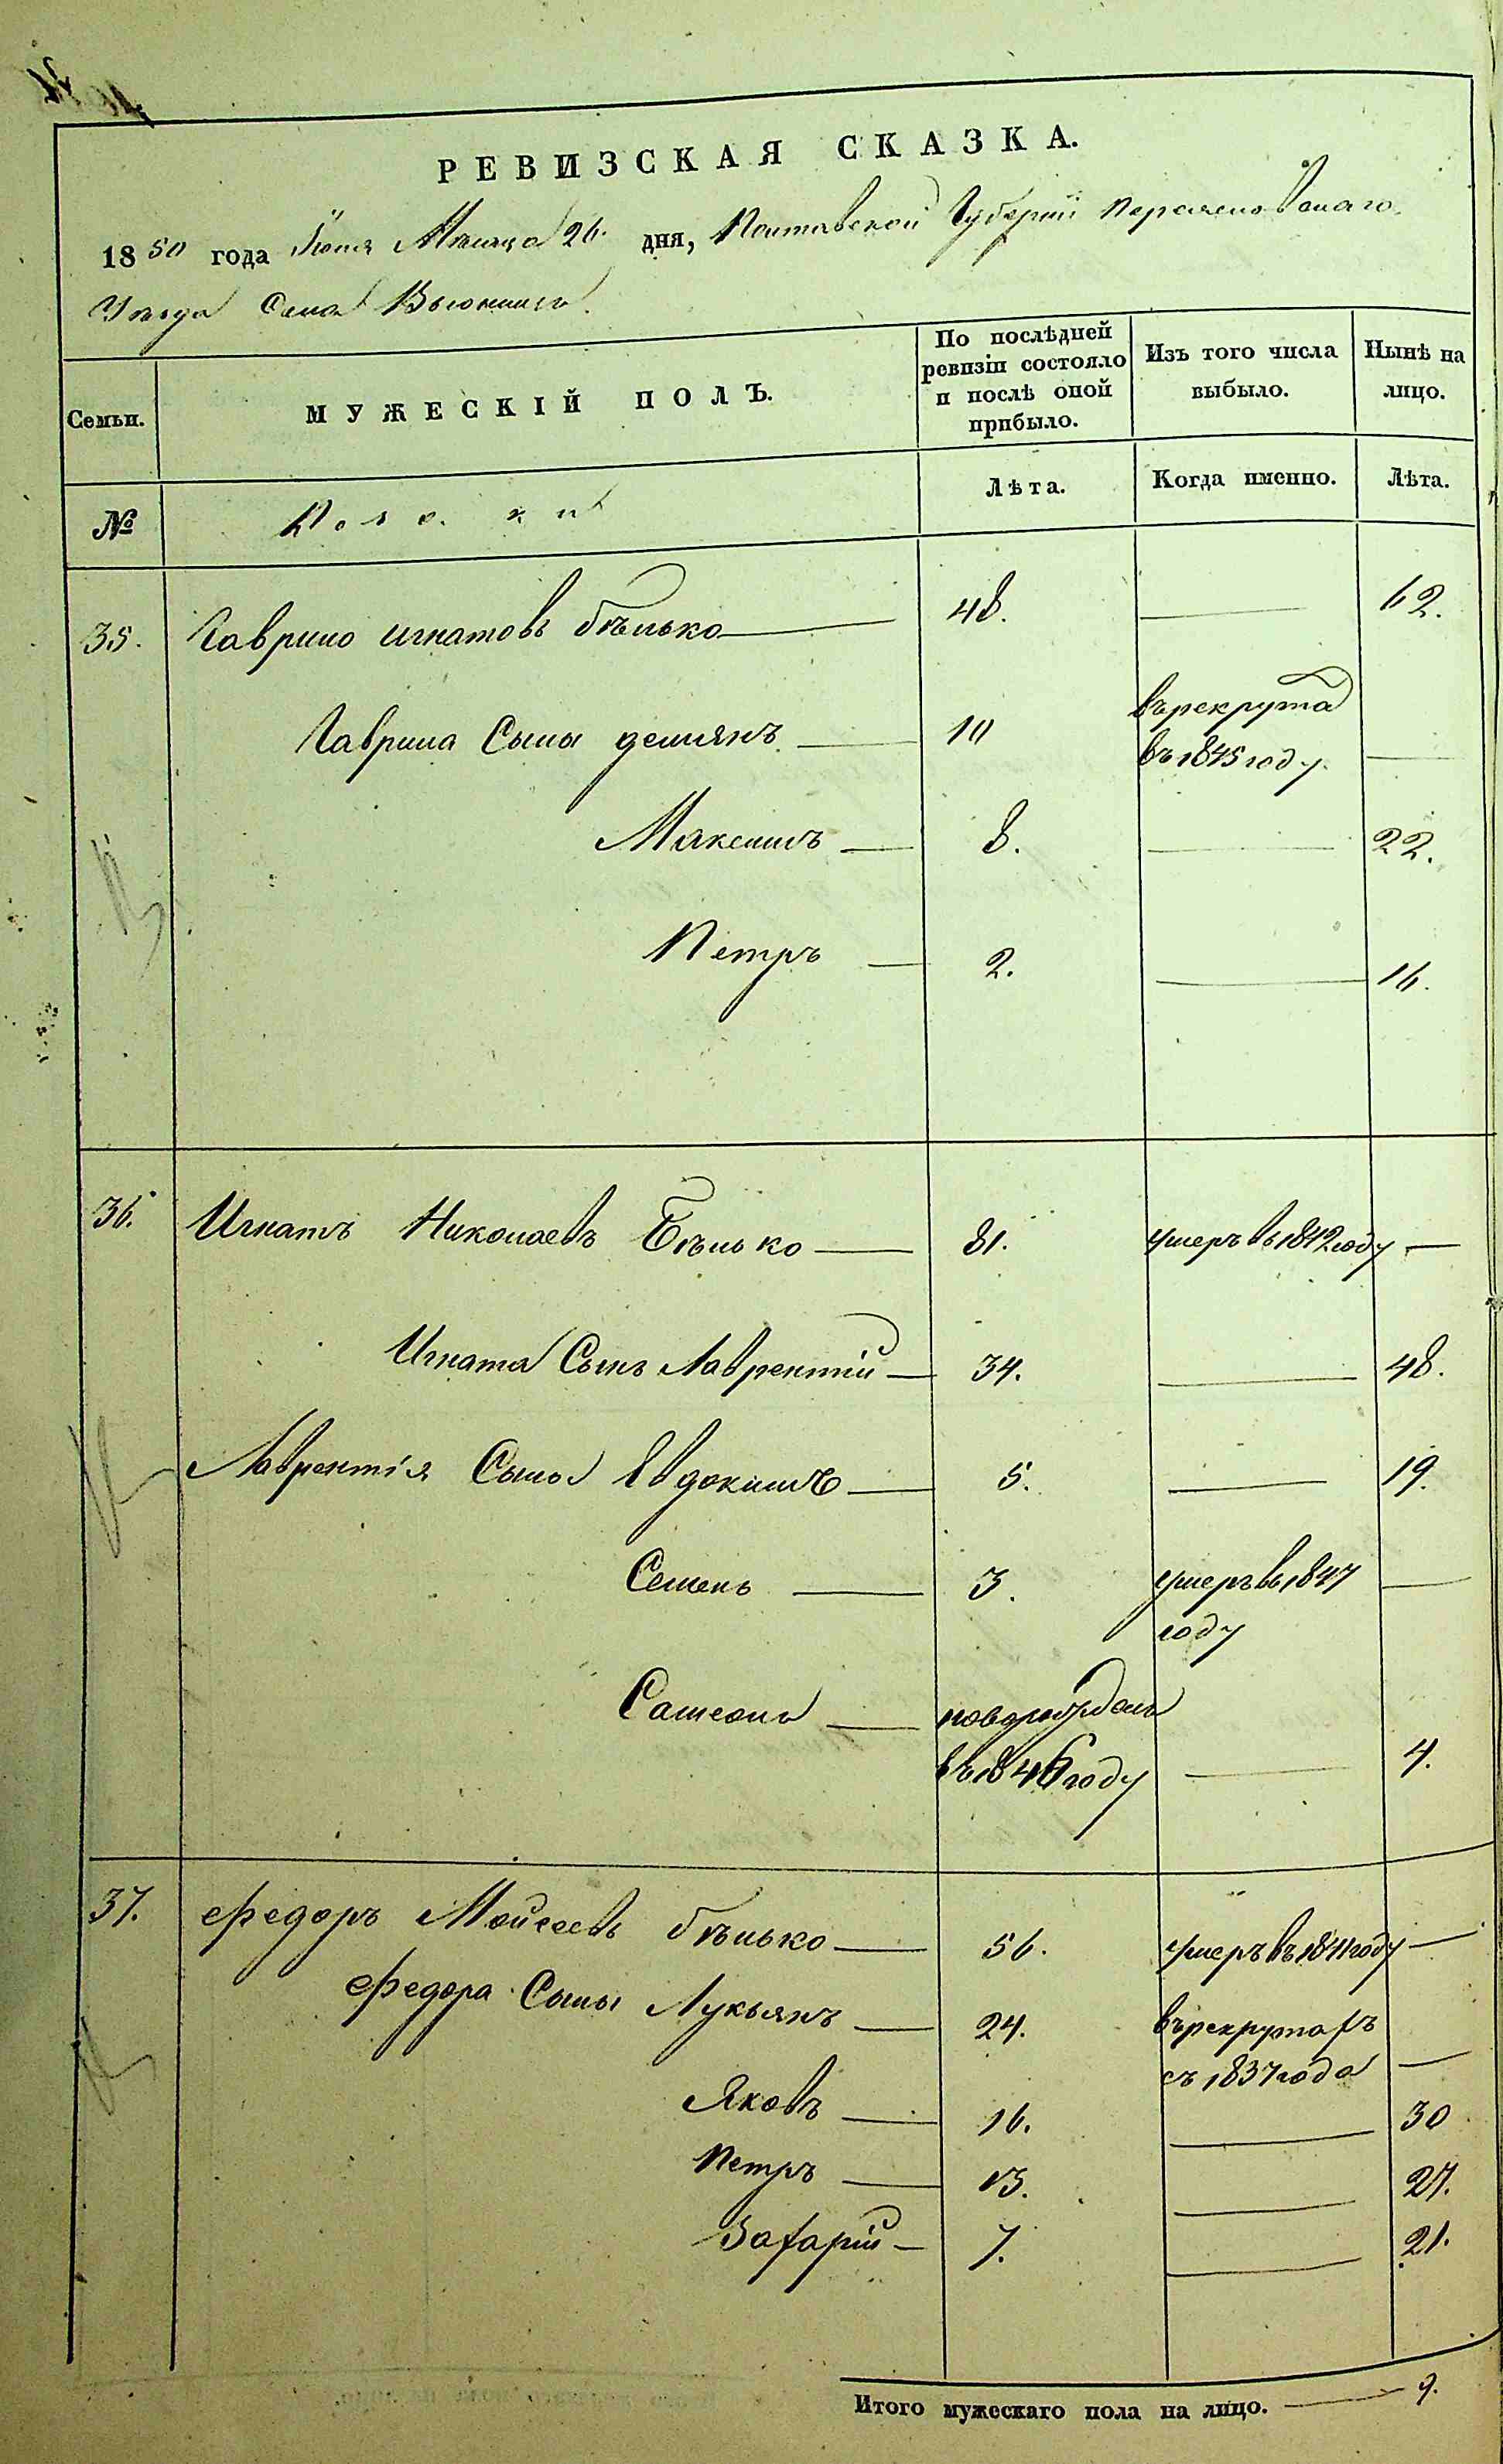 РЕВИЗСКАЯ СКАЗКА.
1850 года Іюня Мѣсяца 26. дня, Полтавской Губерніи
Уѣзда Села
Семьи.
МУЖЕСКІЙ ПОЛЪ.
По послѣдней ревизіи состояло и послѣ оной прибыло.
Изъ того числа выбыло.
Нынѣ на лицо.
№
Лѣта.
Когда именно.
Лѣта.
35. Гаврило игнатовъ бѣлько 48. 62.
Гаврила Сыны демянъ 10 върекрута въ 1845 году.
Максимъ 8. 22.
Петръ 2. 16.
36. Игнатъ Николаевъ Бѣлько 81. умеръ въ 1842 году
Игната Сынъ Лаврентій 34. 48.
Лаврентія Сыны Евдокимъ 5. 19.
Семенъ 3. умеръ въ 1847 году
Самсонъ новорожденъ въ 1846 году 4.
37. Федоръ Мойсеевъ бѣлько 56. умеръ въ 1841 году
Федора Сыны Лукьянъ 24. върекрутахъ съ 1837 года
Яковъ 16. 30
Петръ 13. 27.
Захарій 7. 21.
Итого мужескаго пола на лицо. 9.